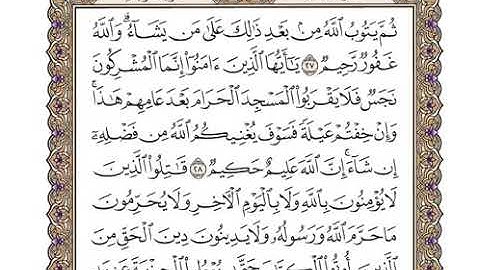 ثُمَّ يَتُوبُ ٱللَّهُ مِنۢ بَعْدِ ذَٰلِكَ عَلَىٰ مَن يَشَآءُ ۗ وَٱللَّهُ
غَفُورٌ رَّحِيمٌ ٢٧ يَـٰٓأَيُّهَا ٱلَّذِينَ ءَامَنُوٓا۟ إِنَّمَا ٱلْمُشْرِكُونَ
نَجَسٌ فَلَا يَقْرَبُوا۟ ٱلْمَسْجِدَ ٱلْحَرَامَ بَعْدَ عَامِهِمْ هَـٰذَا ۚ
وَإِنْ خِفْتُمْ عَيْلَةً فَسَوْفَ يُغْنِيكُمُ ٱللَّهُ مِن فَضْلِهِۦٓ
إِن شَآءَ ۚ إِنَّ ٱللَّهَ عَلِيمٌ حَكِيمٌ ٢٨ قَـٰتِلُوا۟ ٱلَّذِينَ
لَا يُؤْمِنُونَ بِٱللَّهِ وَلَا بِٱلْيَوْمِ ٱلْـَٔاخِرِ وَلَا يُحَرِّمُونَ
مَا حَرَّمَ ٱللَّهُ وَرَسُولُهُۥ وَلَا يَدِينُونَ دِينَ ٱلْحَقِّ مِنَ